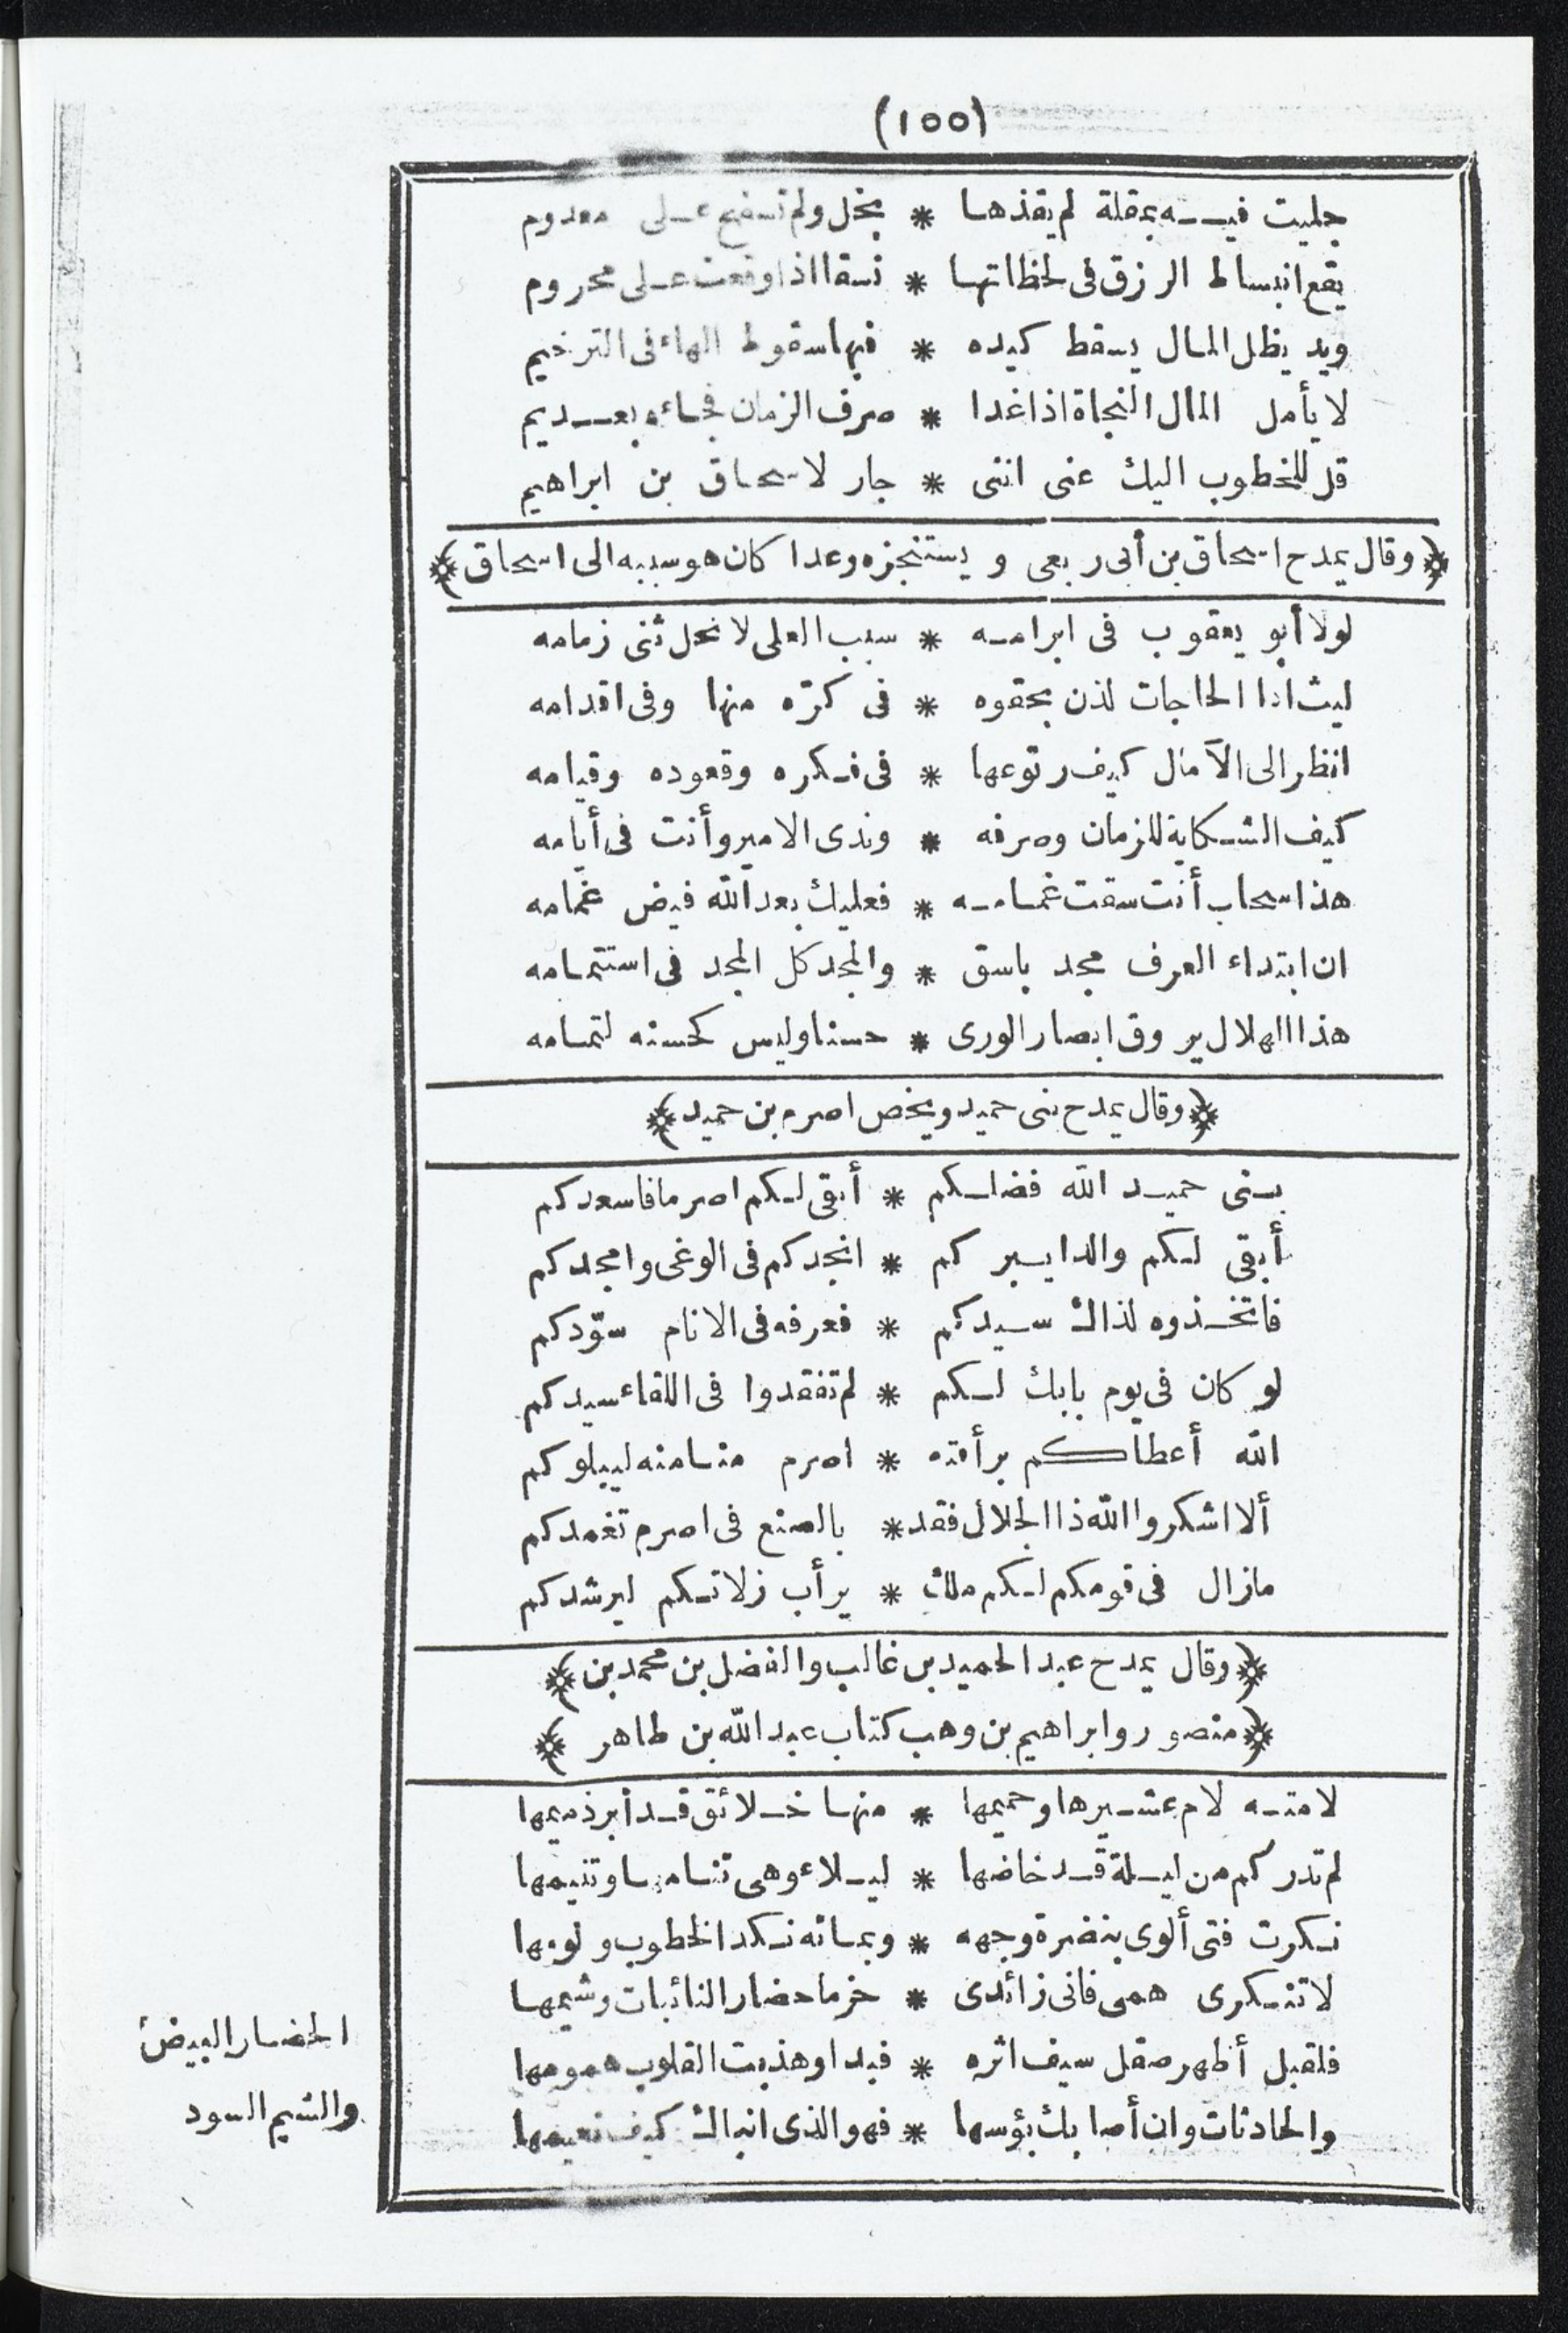 (١٥٥)
جليت فيه بمقلة لم يقذها * بخل ولم تسفح على معدوم
يقع انبساط الرزق فى لحظاتها * نسقا اذا وقعت على محروم
ويد يظل المال يسقط كيده * فيها سقوط الهاء فى الترخيم
لا يأمل المال النجاة اذا غدا * صرف الزمان فجاءه بعديم
قل للخطوب اليك عنى اننى * جار لاسحاق بن ابراهيم
﴿وقال يمدح اسحاق بن أبى ربعى و يستنجزه وعدا كان هو سببه الى اسحاق﴾
لولا أبو يعقوب فى ابرامه * سبب العلى لانحل ثنى زمامه
ليث اذا الحاجات لذن بحقوه * فى كرّه منها وفى اقدامه
انظر الى الآمال كيف رتوعها * فى فكره وقعوده وقيامه
كيف الشكاية للزمان وصرفه * وندى الامير وأنت فى أيامه
هذا سحاب أنت سقت غمامه * فعليك بعد الله فيض غمامه
ان ابتداء العرف مجد باسق * والمجد كل المجد فى استتمامه
هذا الهلال يروق ابصار الورى * حسنا وليس كحسنه لتمامه
﴿وقال يمدح بنى حميد ويخص اصرم بن حميد﴾
بنى حميد الله فضلكم * أبقى لكم اصرما فاسعدكم
أبقى لكم والدا يبركم * انجدكم فى الوغى وامجدكم
فاتخذوه لذاك سيدكم * فعرفه فى الانام سوّدكم
لو كان فى يوم بابك لكم * لم تفقدوا فى اللقاء سيدكم
الله أعطاكم برأفته * اصرم منا منه ليبلوكم
ألا اشكروا الله ذا الجلال فقد * بالصنع فى اصرم تغمدكم
مازال فى قومكم لكم ملك * يرأب زلاتكم ليرشدكم
﴿وقال يمدح عبد الحميد بن غالب والفضل بن محمد بن﴾
﴿منصور وابراهيم بن وهب كتاب عبد الله بن طاهر﴾
لامته لام عشيرها وحميمها * منها خلائق قد أبر ذميمها
لم تدر كم من ليلة قد خاضها * ليلاء وهى تنامها وتنيمها
نكرت فتى ألوى بنضرة وجهه * وبمائه نكد الخطوب ولومها
لا تنكرى همى فانى زائدى * حزما حضار النائبات وشيمها
فلقبل أظهر صقل سيف اثره * فبدا وهذبت القلوب همومها
والحادثات وان أصابك بؤسها * فهو الذى انباك كيف نعيمها
الحضار البيض
والشيم السود